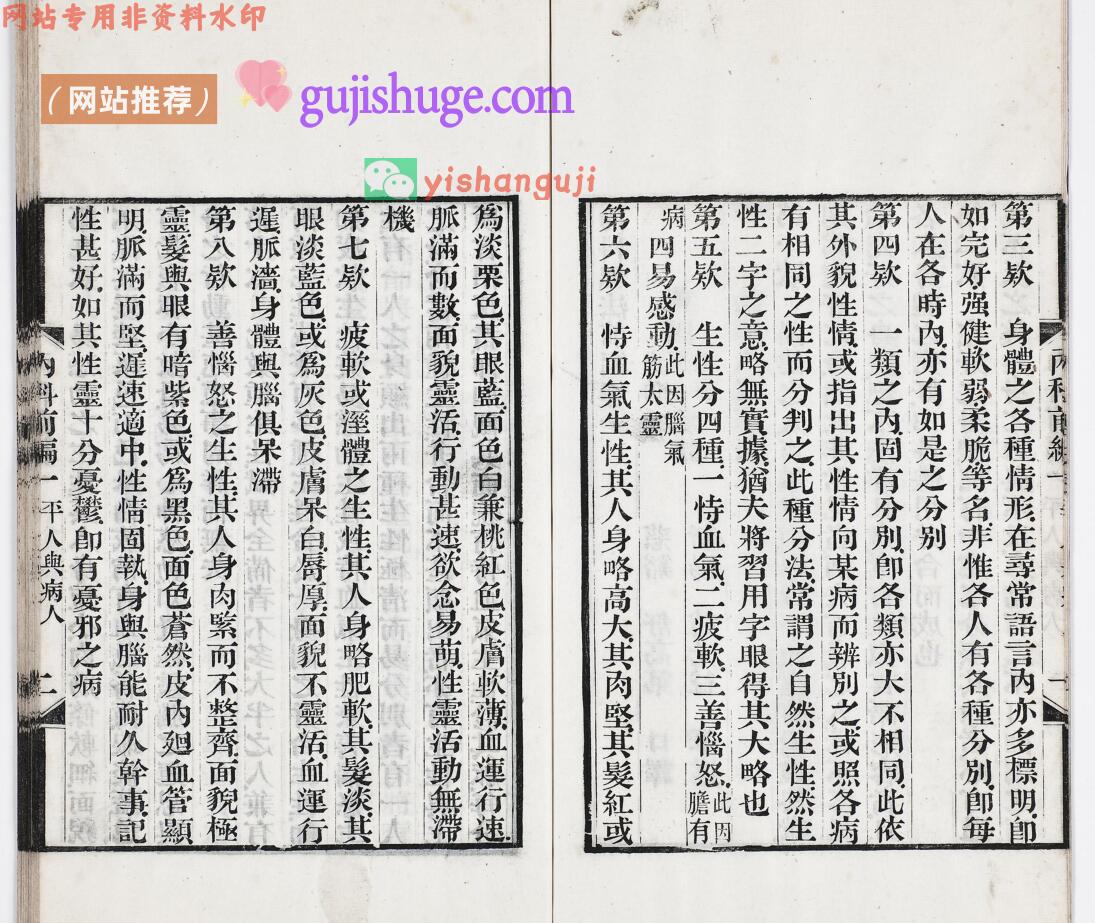 网站专用非资料水印
（网站推荐）
gujishuge.com
yishanguji
第三欵　身體之各種情形.在尋常語言內亦多標明.卽
如完好.强健軟弱.柔脆等名.非惟各人有各種分別.卽每
人在各時內.亦有如是之分别
第四欵　一類之內.固有分別.卽各類亦大不相同.此依
其外貌性情.或指出其性情向某病而辨別之.或照各病
有相同之性而分判之.此種分法.常謂之自然生性.然生
性二字之意.略無實據.猶夫將習用字眼得其大略也
第五欵　生性分四種.一恃血氣.二疲軟.三善惱怒.此因膽有
病四易感動.此因腦氣筋太靈
第六欵　恃血氣生性.其人身略高大.其肉堅.其髮紅或
內科前編一
爲淡栗色.其眼藍.面色白兼桃紅色.皮膚軟薄.血運行速.
脈滿而數.面貌靈活.行動甚速.欲念易萌.性靈活動無滯
機
第七欵　疲軟或溼體之生性.其人身略肥軟.其髮淡.其
眼淡藍色.或爲灰色.皮膚呆白.脣厚.面貌不靈活.血運行
遲.脈濇.身體與腦俱呆滯
第八欵　善惱怒之生性.其人身肉緊而不整齊.面貌極
靈.髮與眼有暗紫色.或爲黑色.面色蒼然.皮內廻血管顯
明.脈滿而堅.遲速適中.性情固執.身與腦能耐久幹事.記
性甚好.如其性靈十分憂鬱.卽有憂邪之病
內科前編一　平人與病人　二